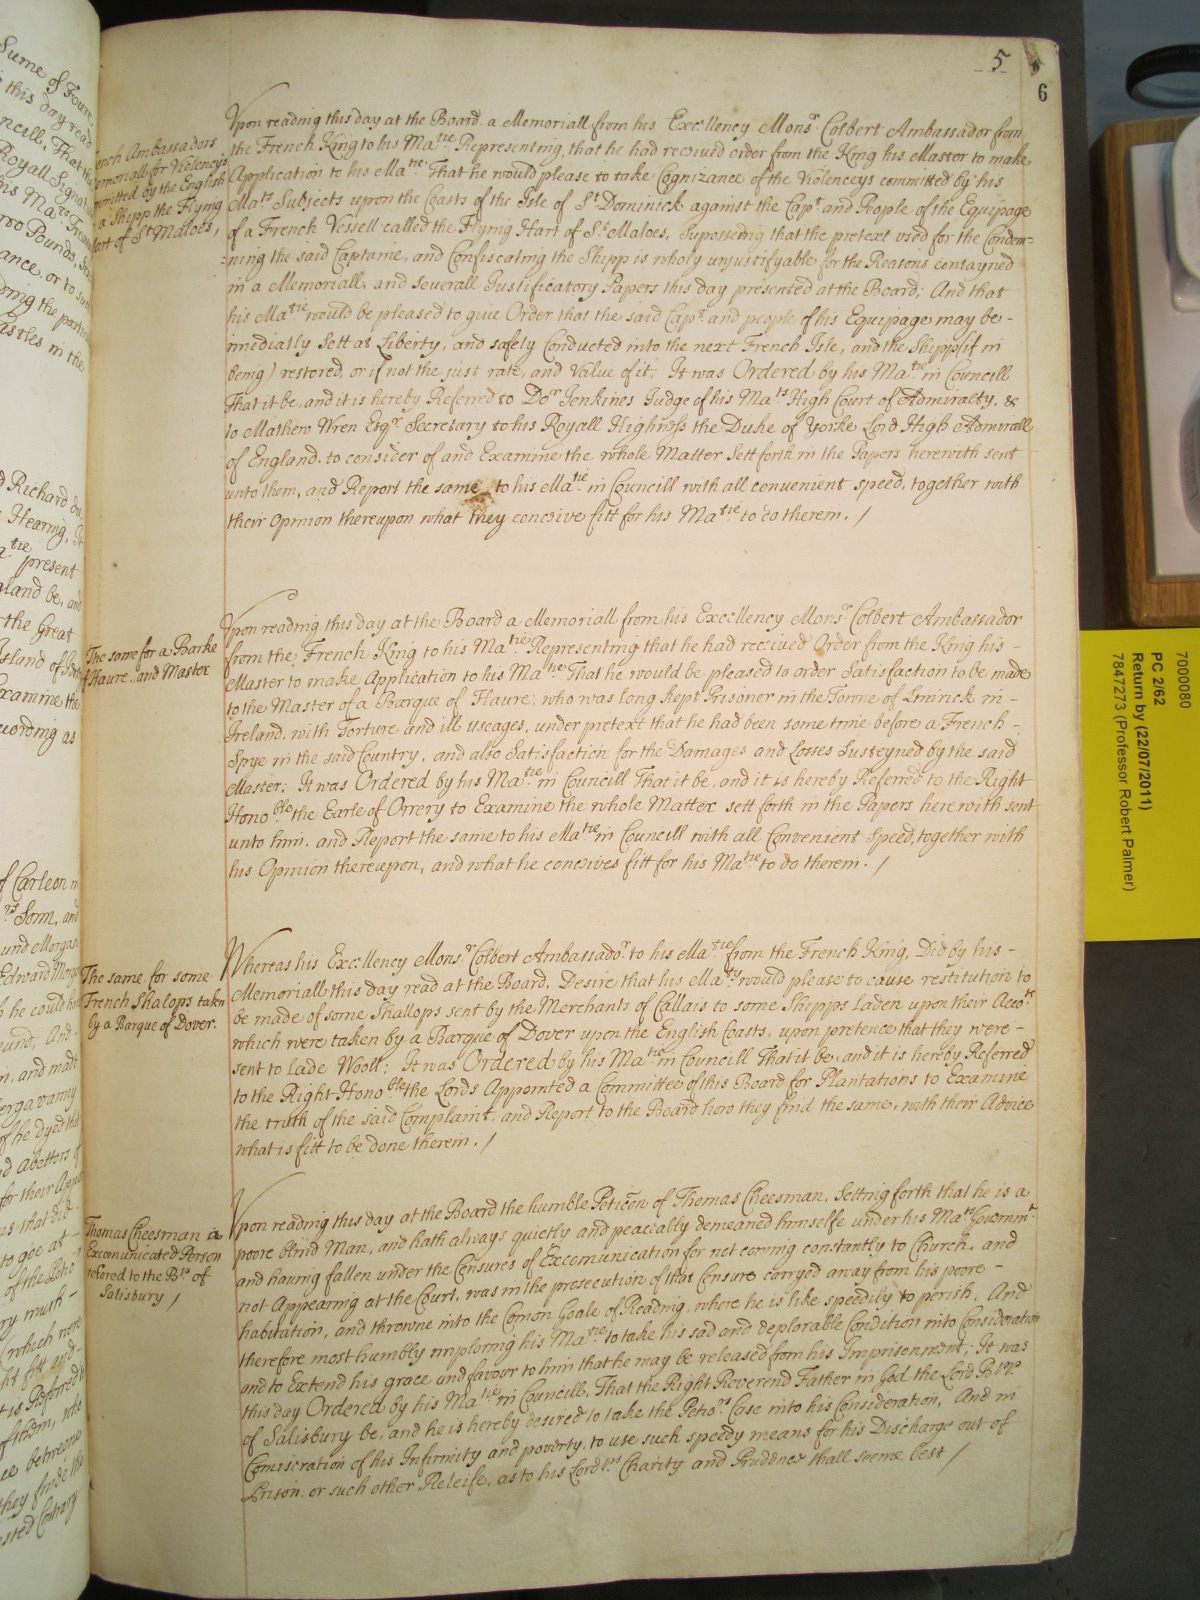 5
6
French Ambassadors
Memoriall for Violencys
committed by the English
on a Shipp the Flying
Hart of St Maloes,
Vpon reading this day at the Board a Memoriall from his Excellency Monsr Colbert Ambassador from
the French King to his Matie Representing, that he had received order from the King his Master to make
Application to his Matie That he would please to take Cognizance of the Violenceys committed by his
Mats Subjects upon the Coasts of the Isle of St Dominick against the Capt and People of the Equipage
of a French Vessell called the Flying Hart of St Maloes, Supposeing that the pretext used for the Condem=
=ning the said Captaine, and Confiscating the Shipp is wholy unjustifyable for the Reasons contayned
in a Memoriall, and severall Justificatory Papers this day presented at the Board; And that
his Matie would be pleased to give Order that the said Capt and people of his Equipage may be -
imediatly Sett at Liberty, and safely Conducted into the next French Isle, and the Shipp (if in
being) restored, or if not the just rate, and Value of it; It was Ordered by his Matie in Councill
That it be, and it is hereby Referred to Dor Jenkines Judge of his Mats High Court of Admiralty, &
to Mathew Wren Esqr Secretary to his Royall Highness the Duke of Yorke Lord High Admirall
of England, to consider of and Examine the whole Matter Sett forth in the Papers herewith sent
unto them, and Report the same to his Matie in Councill with all convenient speed, together with
their Opinion thereupon what they conceive fitt for his Matie to do therein. /
The same for a Barke
of Haure and Master
Vpon reading this day at the Board a Memoriall from his Excellency Monsr Colbert Ambassador
from the French King to his Matie Representing that he had received Order from the King his -
Master to make Application to his Matie That he would be pleased to order Satisfaction to be made
to the Master of a Barque of Haure, who was long kept Prisoner in the Towne of Limrick in -
Ireland, with Torture and ill useages, under pretext that he had been some time before a French -
Spye in the said Country, and also Satisfaction for the Damages and Losses Susteyned by the said
Master; It was Ordered by his Matie in Councill That it be, and it is hereby Referred to the Right
Honoble the Earle of Orrery to Examine the whole Matter sett forth in the Papers herewith sent
unto him, and Report the same to his Matie in Councill with all Convenient Speed, together with
his Opinion thereupon, and what he conceives fitt for his Matie to do therein. /
The same for some
French Shalops taken
by a Barque of Dover.
Whereas his Excellency Monsr Colbert Ambassador to his Matie from the French King, Did by his -
Memoriall this day read at the Board, Desire that his Maty would please to cause restitution to
be made of some Shallops sent by the Merchants of Callais to some Shipps laden upon their Accots
which were taken by a Barque of Dover upon the English Coasts, upon pretence that they were -
sent to lade Wooll; It was Ordered by his Matie in Councill That it be, and it is hereby Referred
to the Right Honoble the Lords Appointed a Committee of this Board for Plantations to Examine
the truth of the said Complaint, and Report to the Board how they find the same, with their Advice
what is fitt to be done therein. /
Thomas Cheesman a
Excomunicated Person
refered to the Bp of
Salisbury /
Vpon reading this day at the Board the humble Peticon of Thomas Cheesman, Setting forth that he is a
poore blind Man, and hath always quietly and peacially demeaned himselfe under his Mats Governmt
and having fallen under the Censures of Excomunication for not coming constantly to Church, and
not Appearing at the Court, was in the prosecution of that Censure carryed away from his poore -
habitation, and throwne into the Comon Goale of Reading, where he is like speedily to perish, And
therefore most humbly imploring his Matie to take his sad and deplorable Condition into Consideration
and to Extend his grace and favour to him that he may be released from his Imprisonment; It was
this day Ordered by his Matie in Councill, That the Right Reverend Father in God the Lord Bpp
of Salisbury be, and he is hereby desired to take the Petrs Case into his Consideration, And in
Comiseration of his Infirmity and poverty, to use such speedy means for his Discharge out of
Prison, or such other Releife, as to his Lordps Charity and Prudence shall seeme best /
7000080
PC 2/62
Return by (22/07/2011)
7847273 (Professor Robert Palmer)